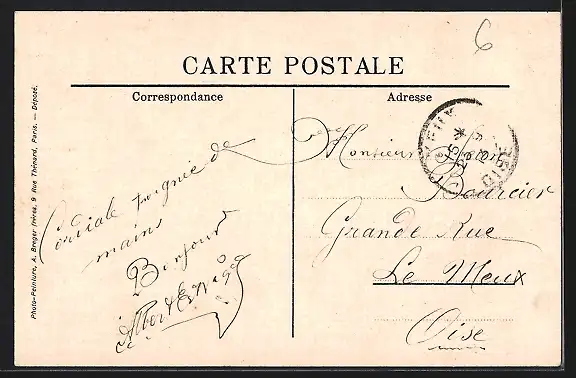 6
CARTE POSTALE
Correspondance
Adresse
Cordiale poignée de
mains
Bonjour
Albert
Monsieur
Bourcier
Grande Rue
Le Meux
Oise
OISE
Photo-Peinture, A. Breger frères, 9 Rue Thénard, Paris. — Déposé.